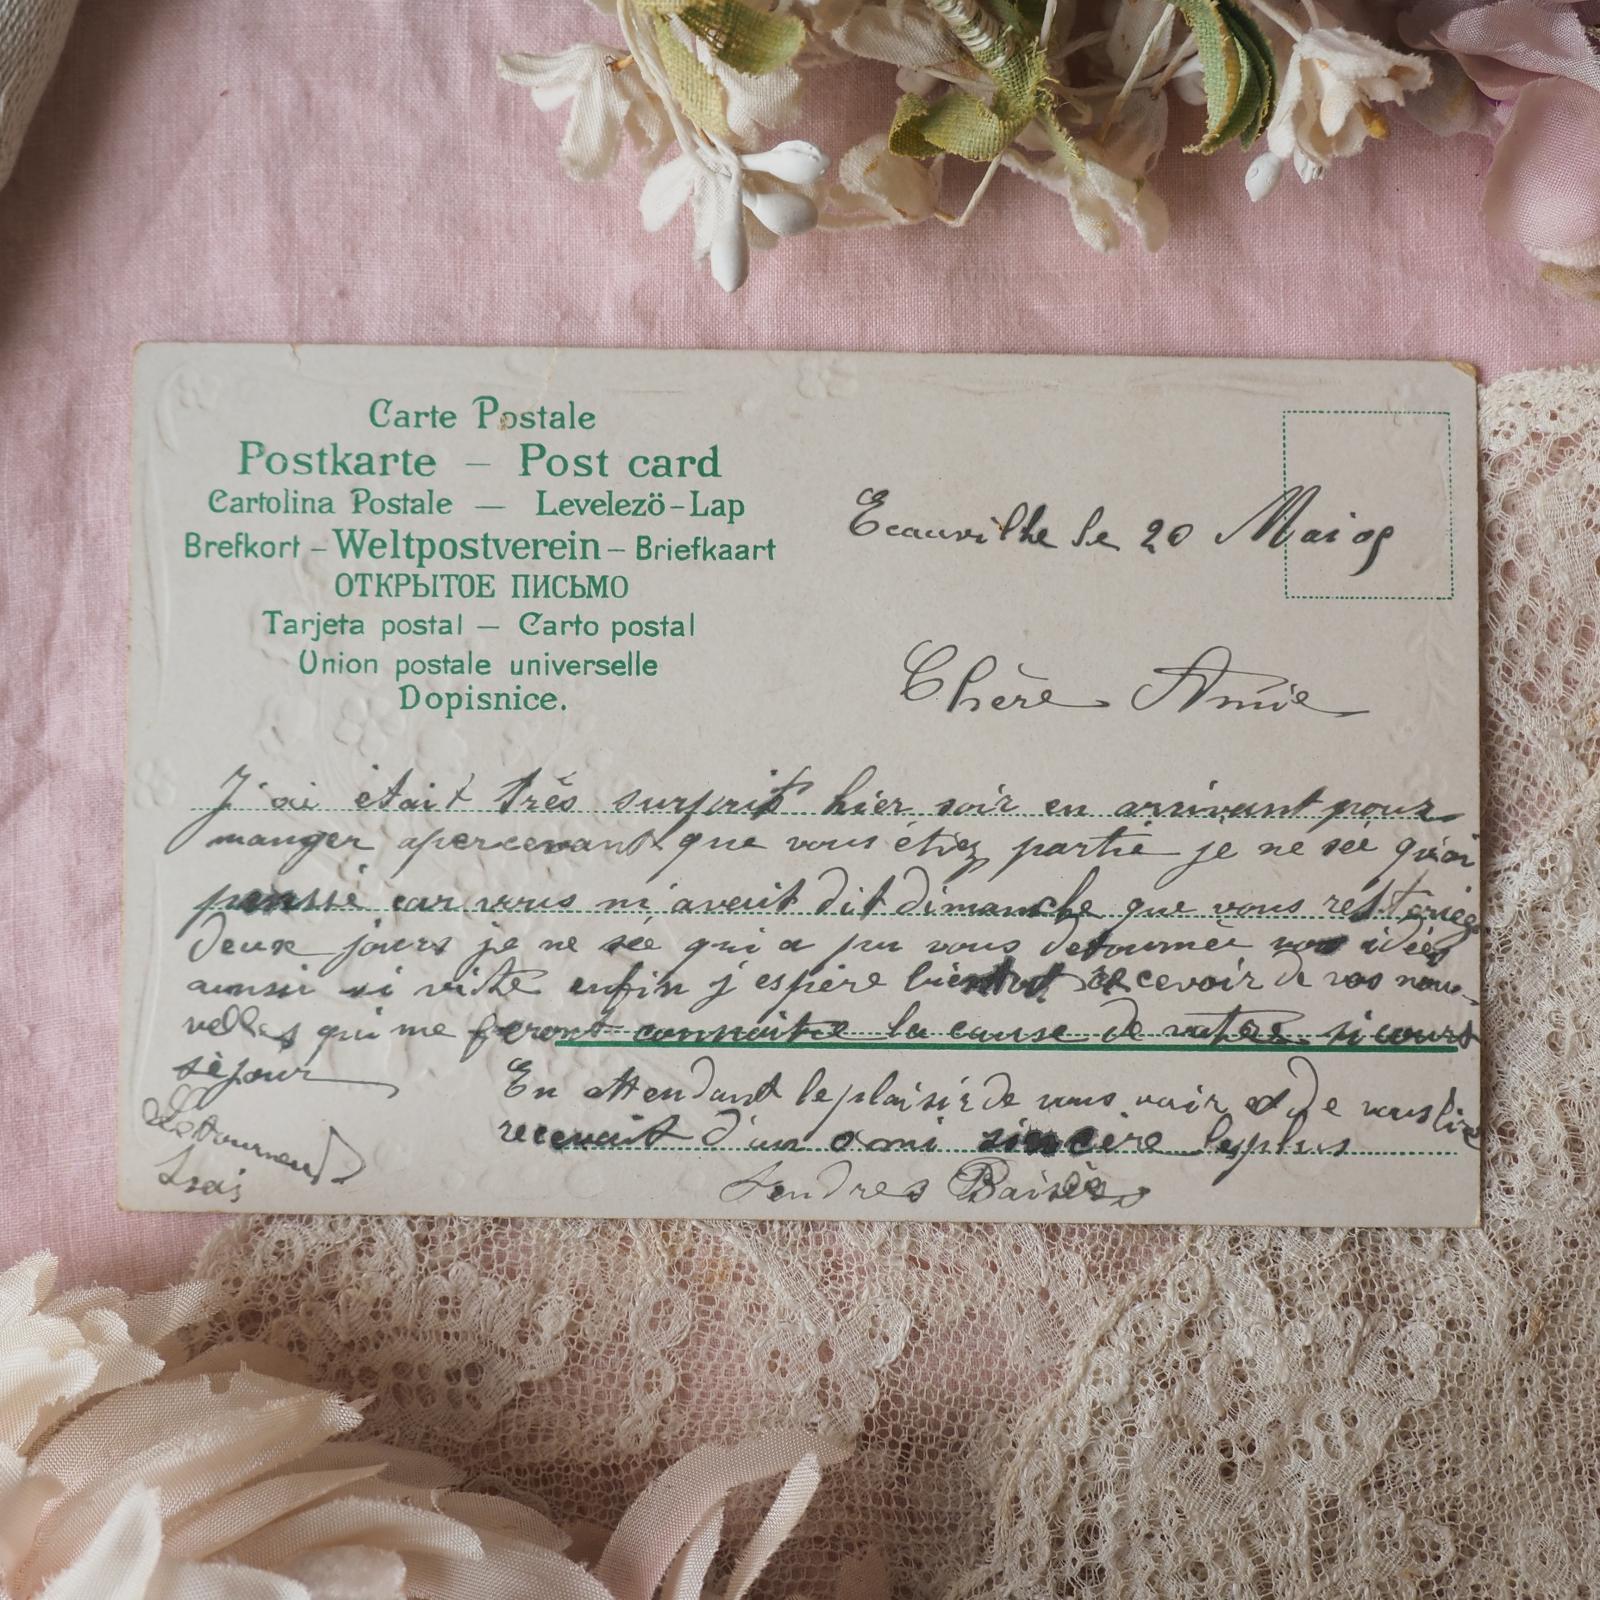 Carte Postale
Postkarte – Post card
Cartolina Postale — Levelezö-Lap
Brefkort – Weltpostverein – Briefkaart
ОТКРЫТОЕ ПИСЬМО
Tarjeta postal — Carto postal
Union postale universelle
Dopisnice.
Ecauville le 20 Mai 09
Chère Amie
J'ai était très surprit hier soir en arrivant pour
manger apercevant que vous étiez partie je ne sée quoi
pensée car vous m'avait dit dimanche que vous resteriez
deux jours je ne sée qui a pu vous detournée vos idées
aunsii si vitte enfin j'espère bientot recevoir de vos nou-
velles qui me feront connaitre la cause de votre si court
séjour
En attendant le plaisir de vous voir et de vous lire
recevait d'un ami sincère les plus
tendres Baisées